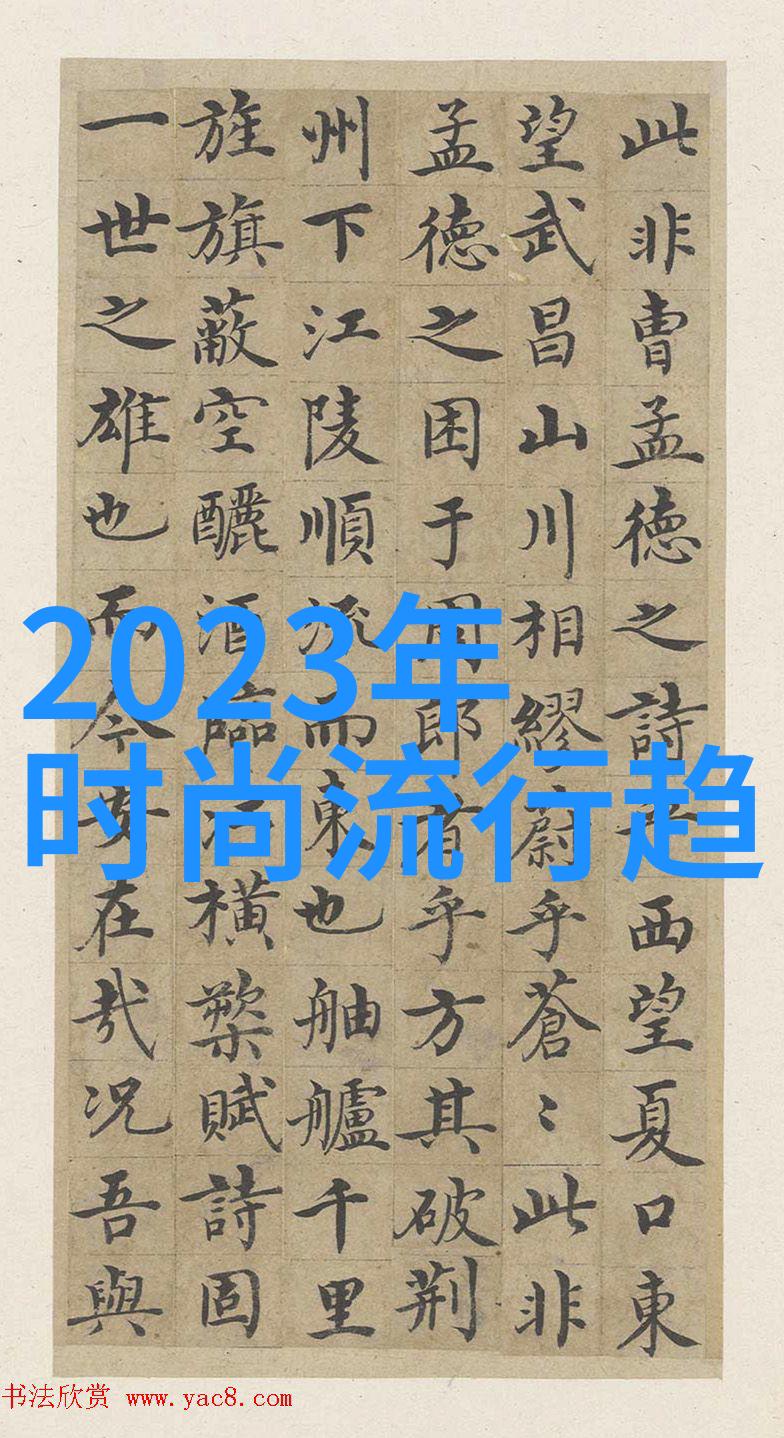 此非曹孟德之詩乎西望夏口東
望武昌山川相繆蔚乎蒼〻此非
孟德之困于周郎者乎方其破荆
州下江陵順流而東也舳艫千里
旌旗蔽空釃酒臨江横槊賦詩固
一世之雄也而今安在哉况吾與
2023年
时尚流行趋
书法欣赏 www.yac8.com